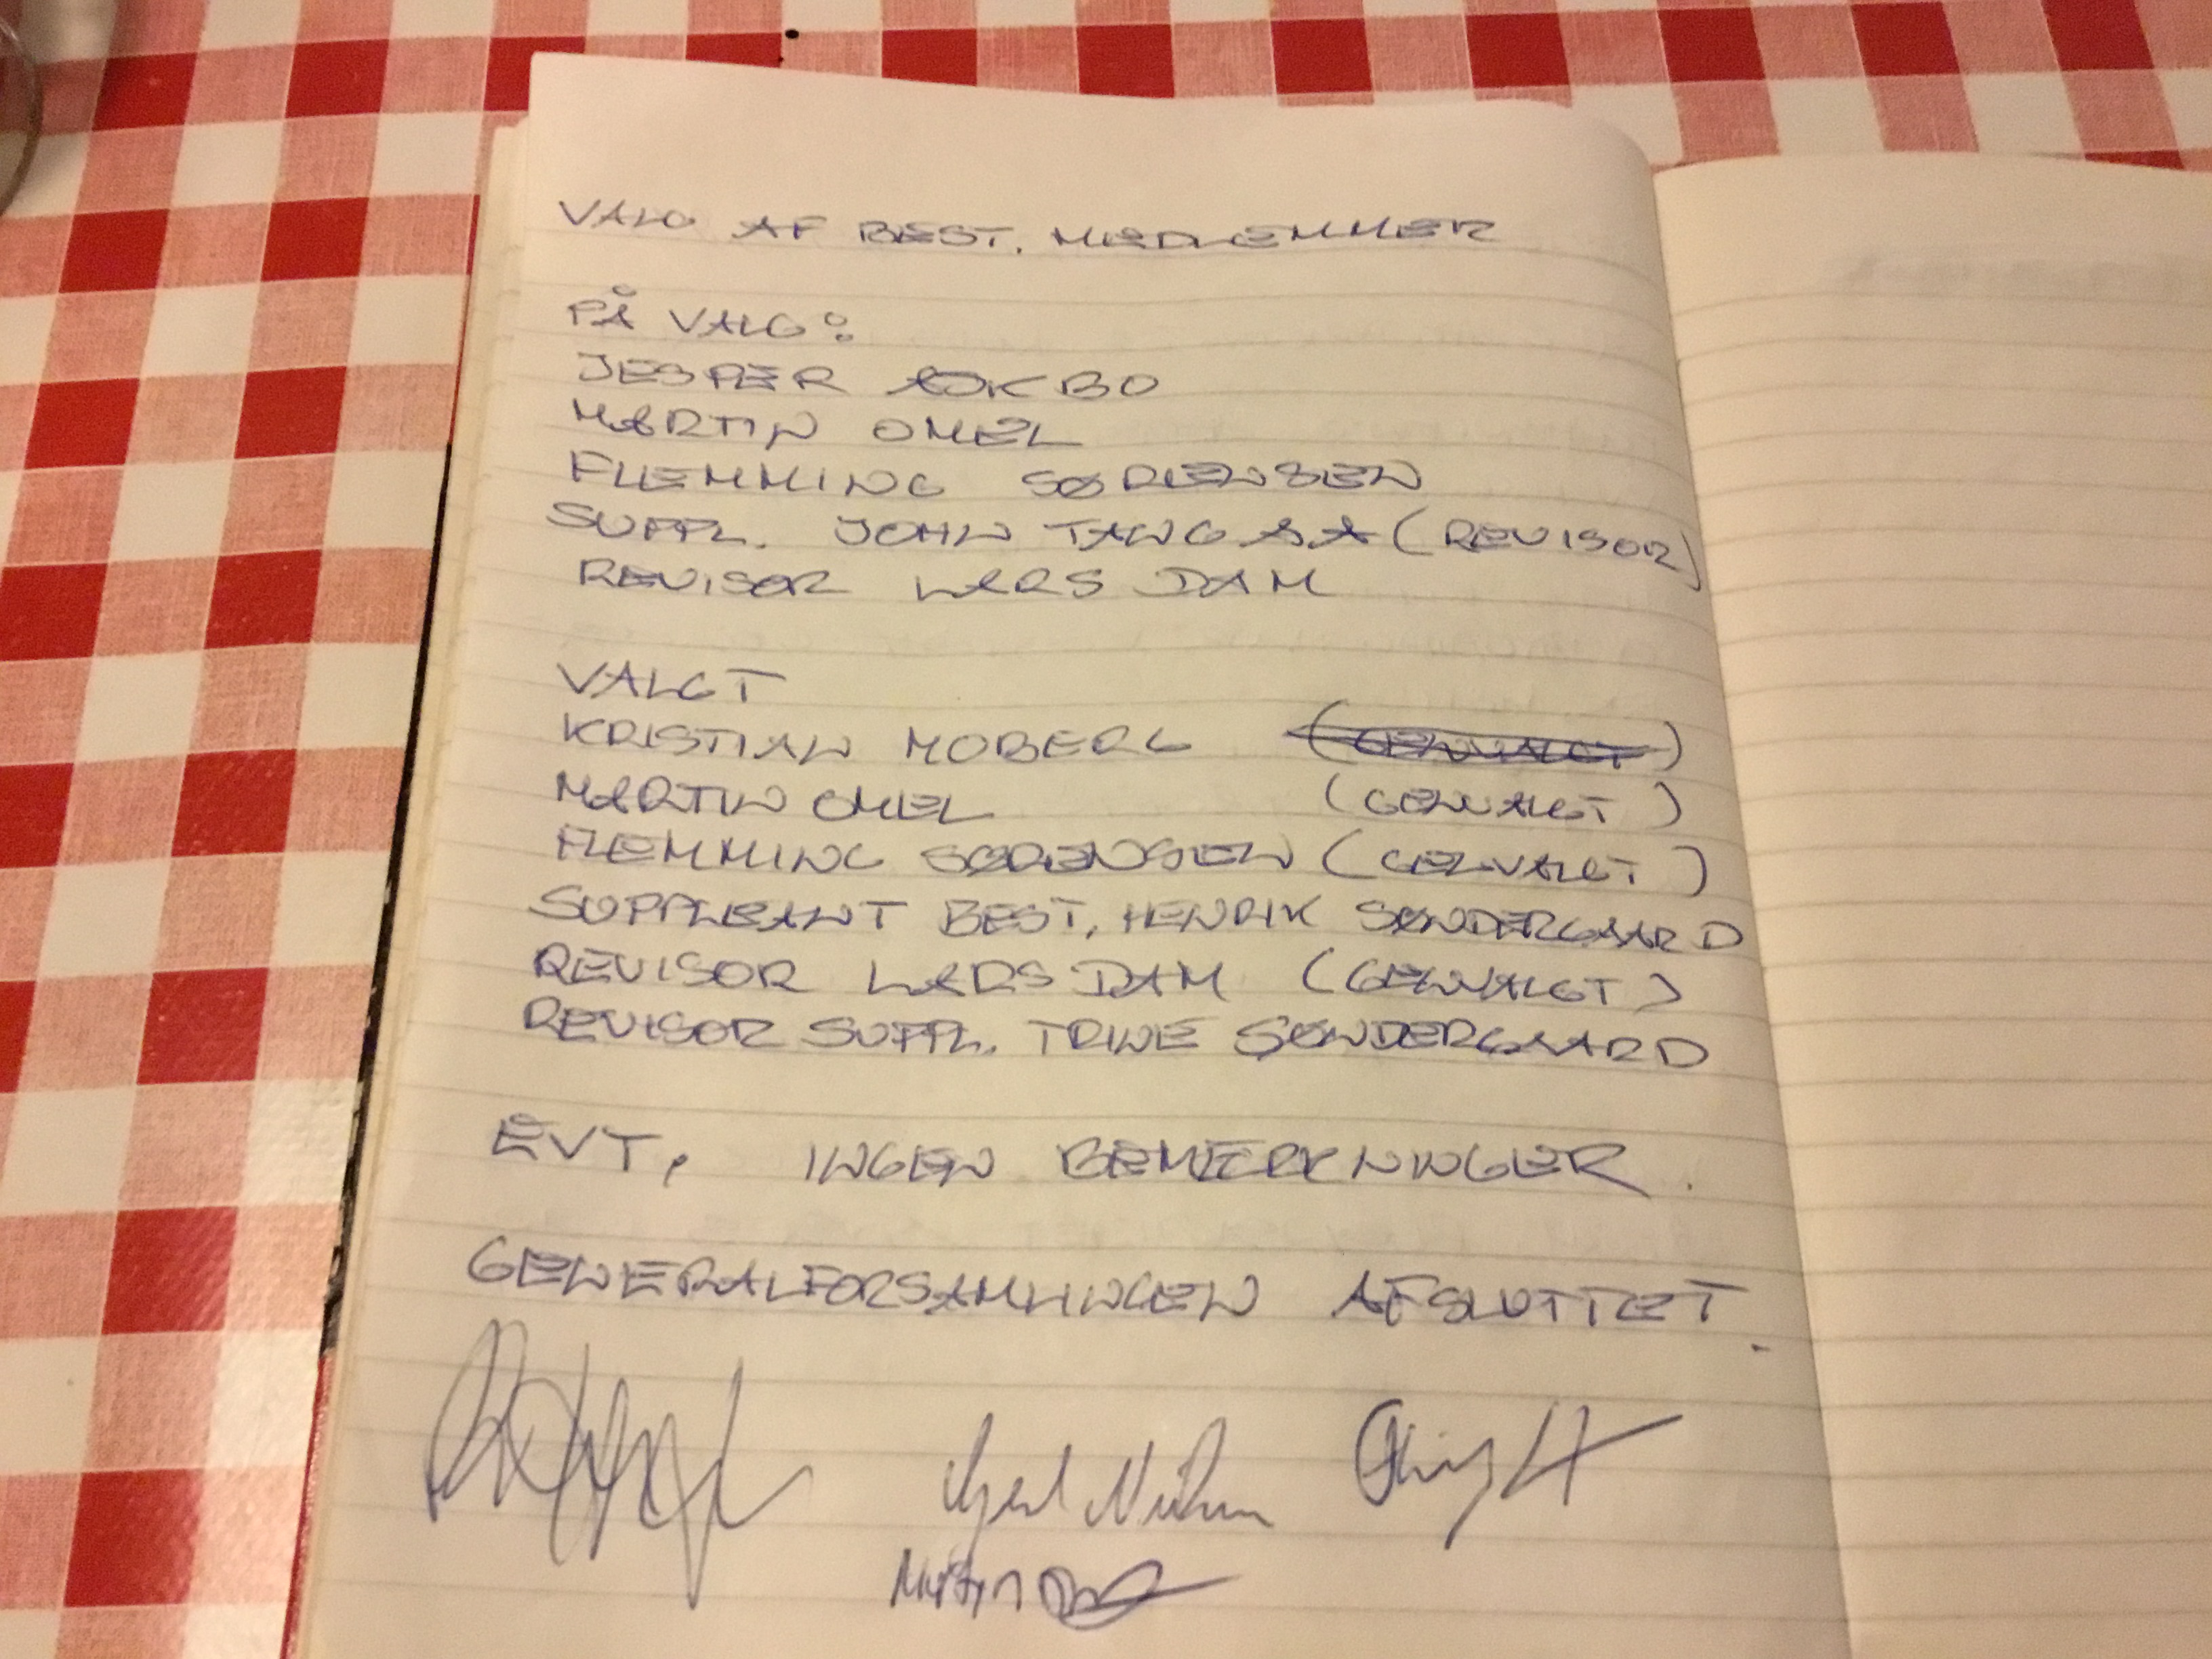 VALG AF BEST. MEDLEMMER
PÅ VALG:
JESPER BOKBO
MARTIN OMEL
FLEMMING SØRENSEN
SUPPL. JOHN TANGAA (REVISOR)
REVISOR LARS DAM
VALGT
KRISTIAN MOBERG (GENVALGT)
MARTIN OMEL (GENVALGT)
FLEMMING SØRENSEN (GENVALGT)
SUPPLEANT BEST. HENRIK SØNDERGAARD
REVISOR LARS DAM (GENVALGT)
REVISOR SUPPL. TRINE SØNDERGAARD
EVT. INGEN BEMÆRKNINGER.
GENERALFORSAMLINGEN AFSLUTTET.
Martin